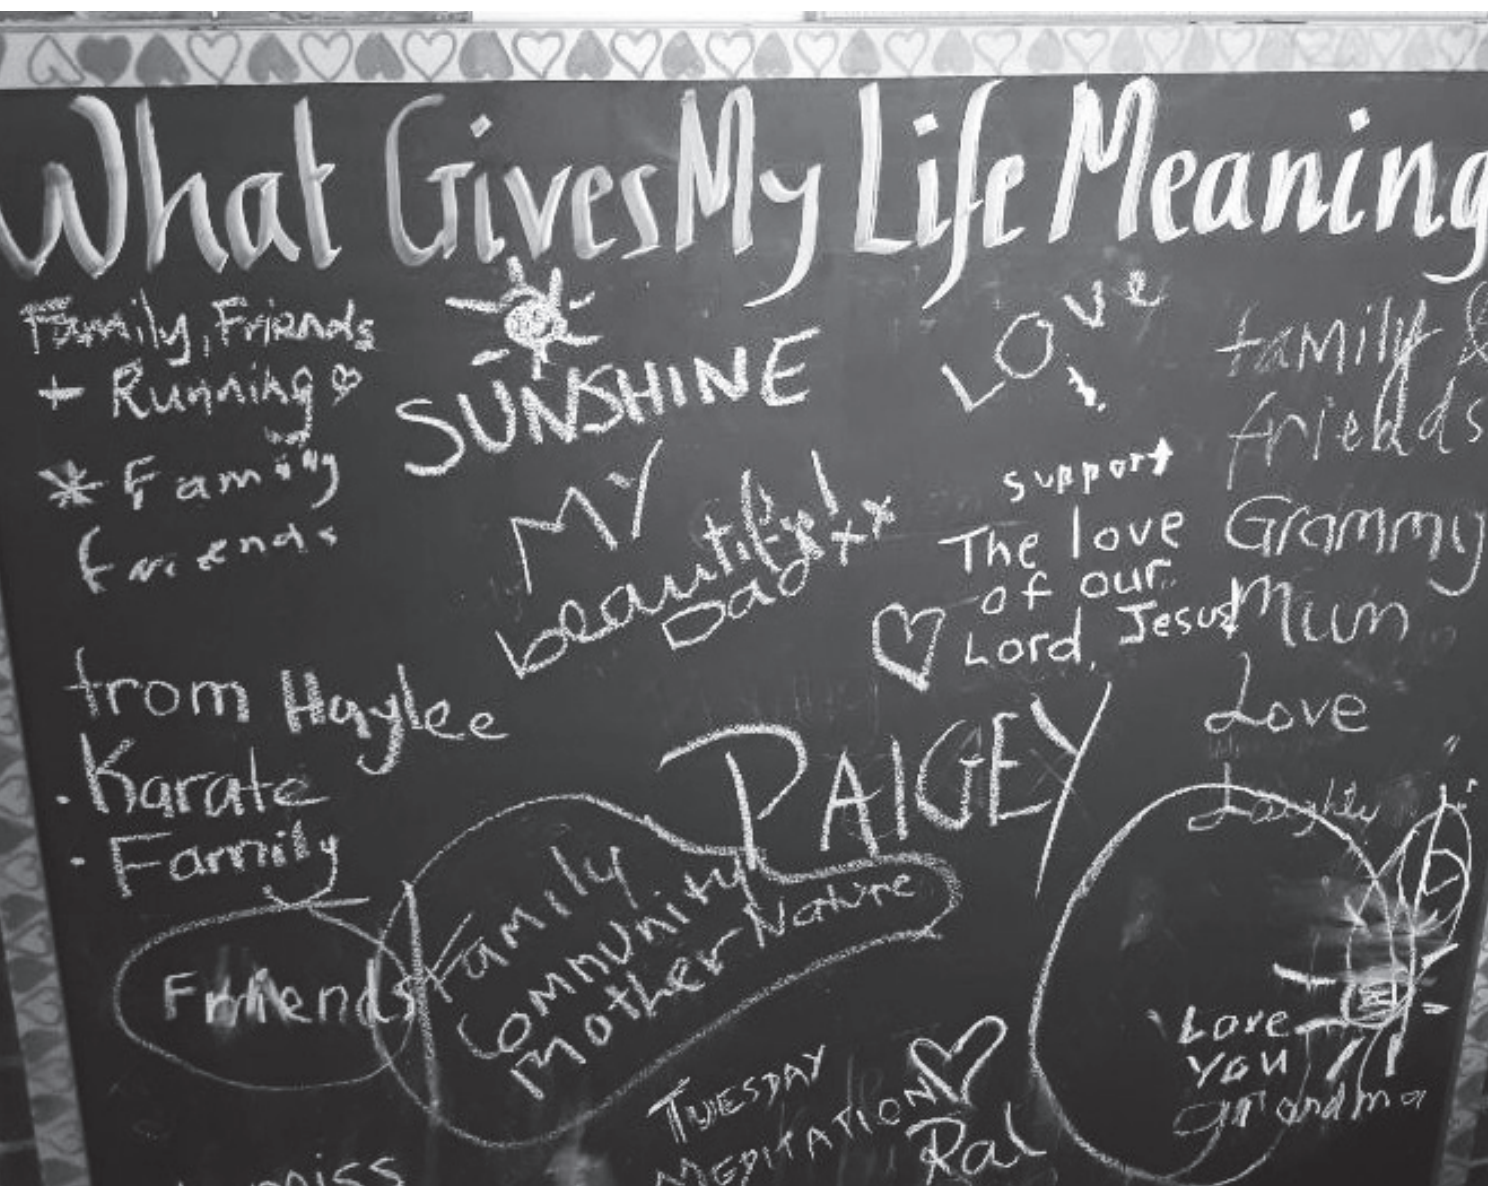 What Gives My Life Meaning
Family, Friends
+ Running
* Family
friends
from Haylee
. Karate
. Family
Friends
SUNSHINE
MY
beautiful
Dad xxx
LOVE
support
The love
of our
Lord, Jesus
family &
friends
Grammy
Mum
Love
PAIGEY
Family
Community
Mother Nature
TUESDAY
MEDITATION
Ral
Love
you
grandma
miss